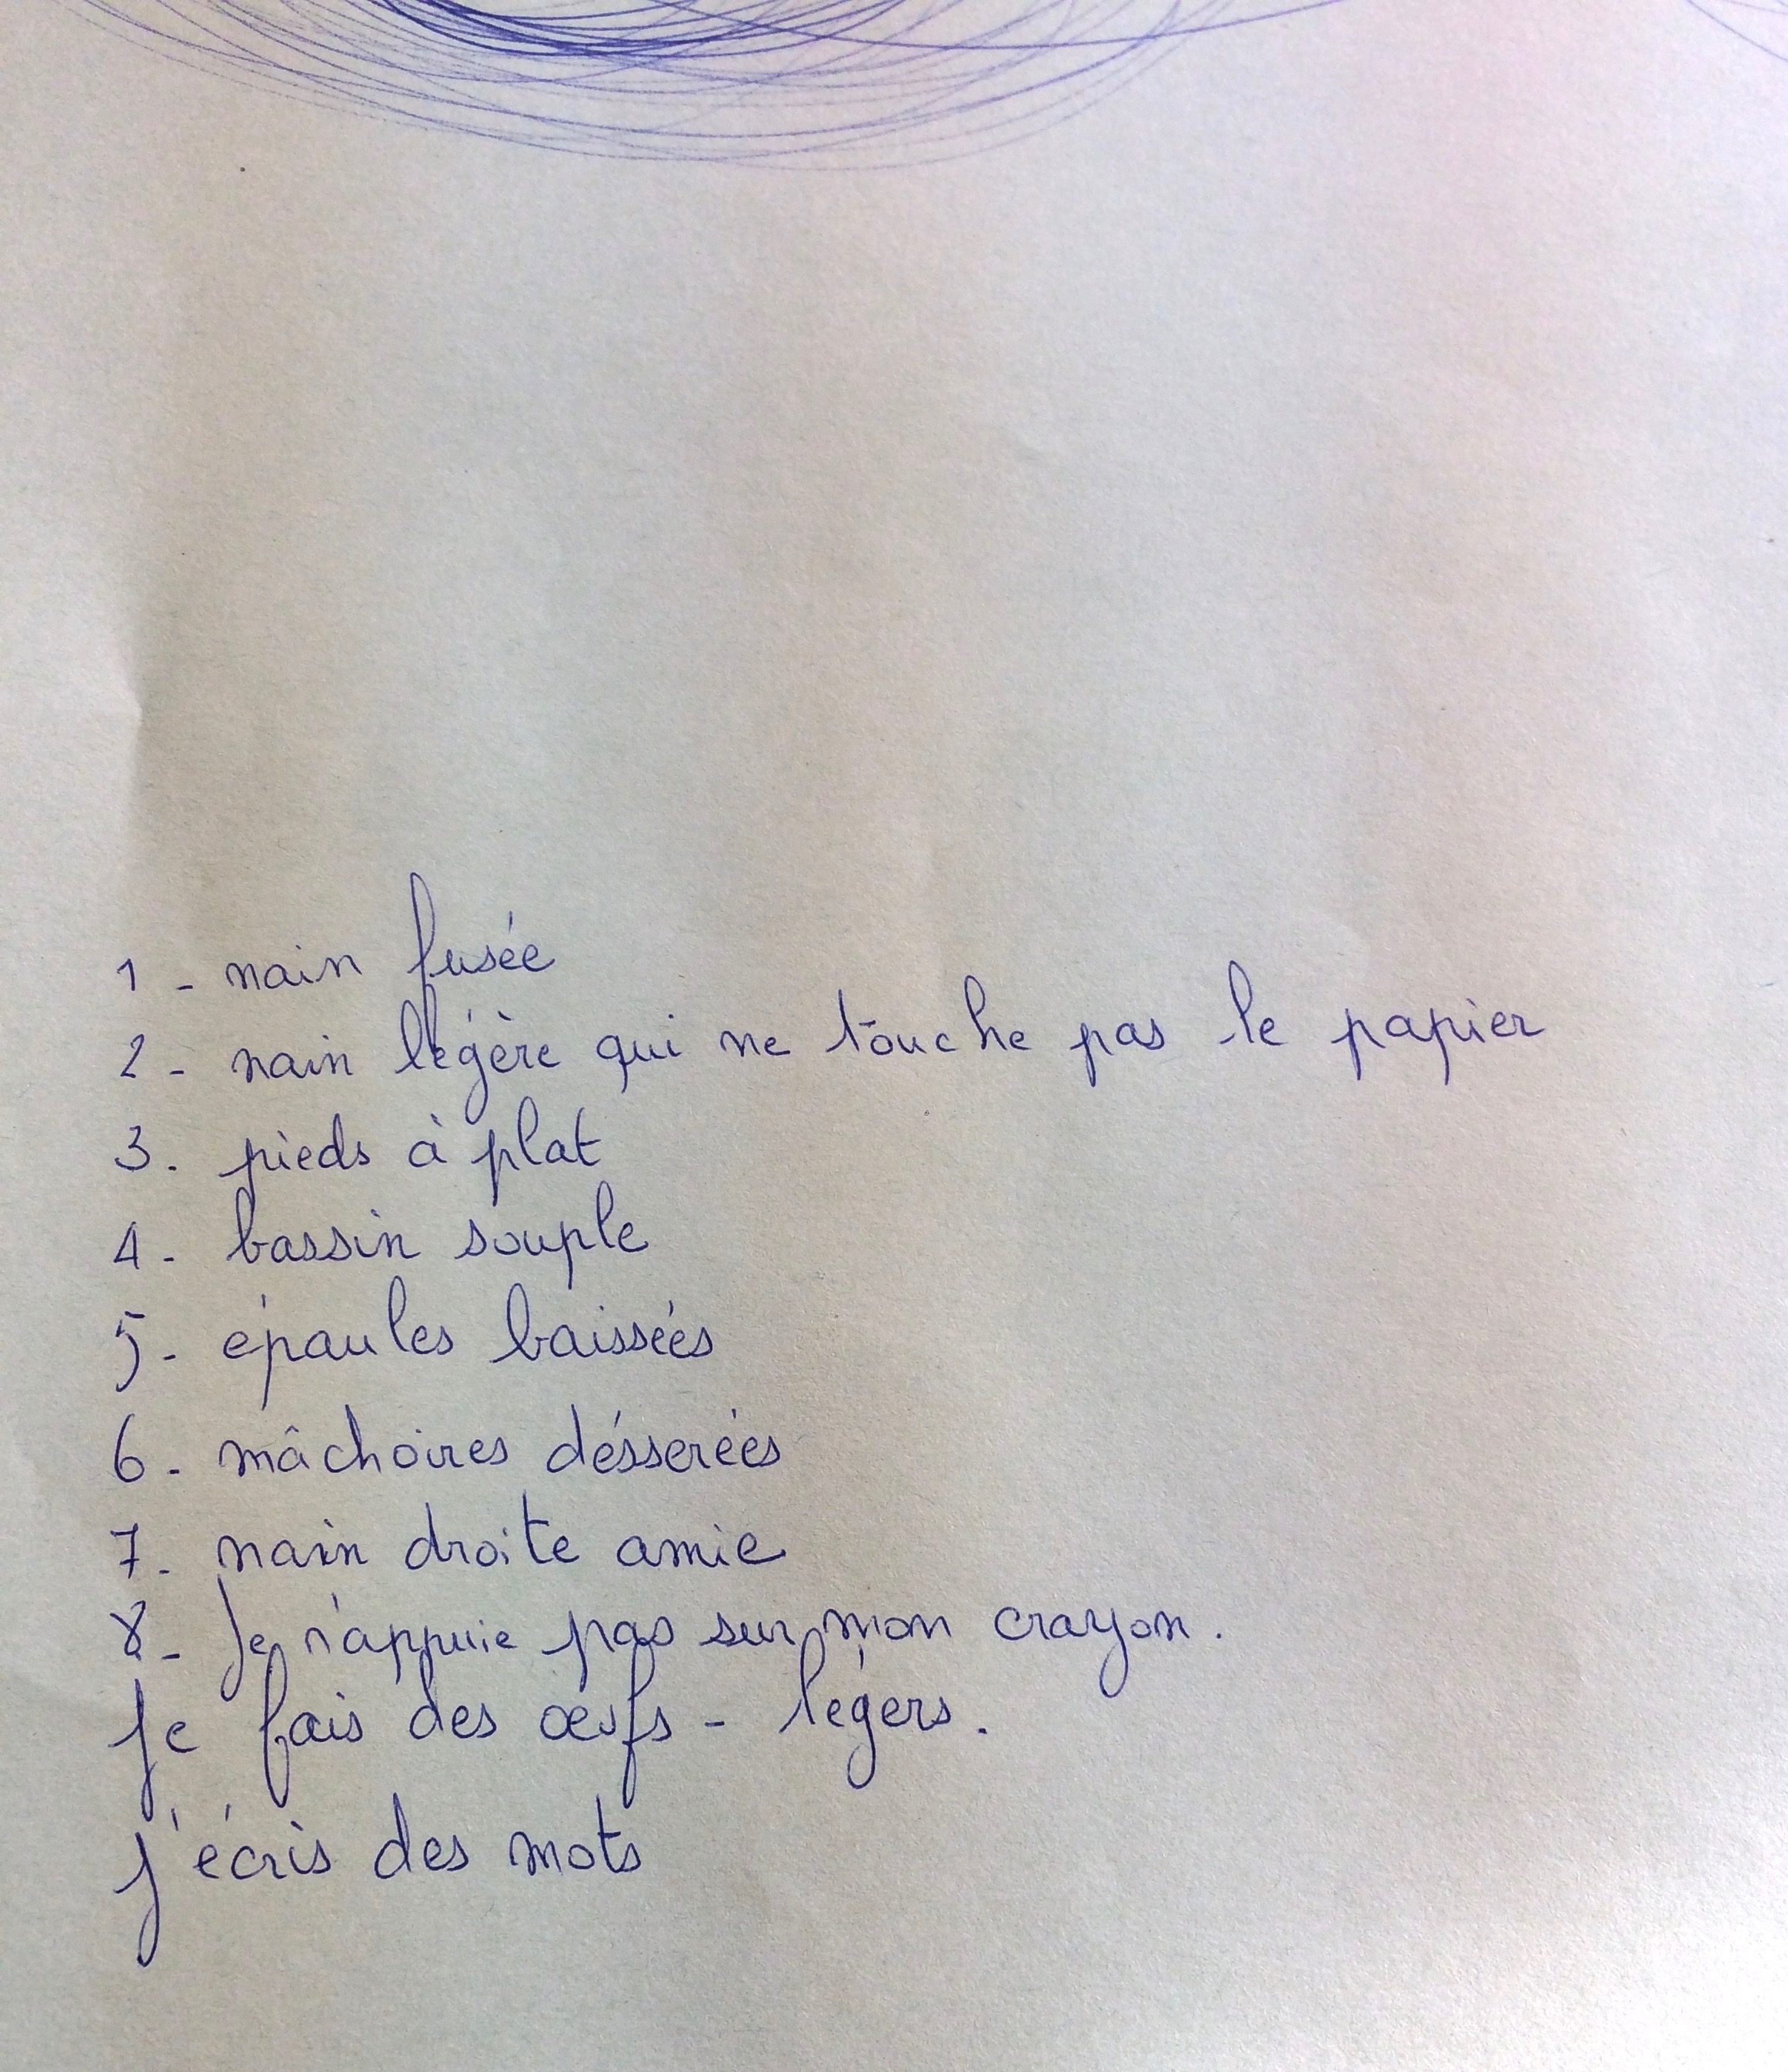 1 - main fusée
2 - main légère qui ne touche pas le papier
3. pieds à plat
4. bassin souple
5. épaules baissées
6. mâchoires désserées
7. main droite amie
8 - Je n'appuie pas sur mon crayon.
Je fais des œufs - légers.
J'écris des mots